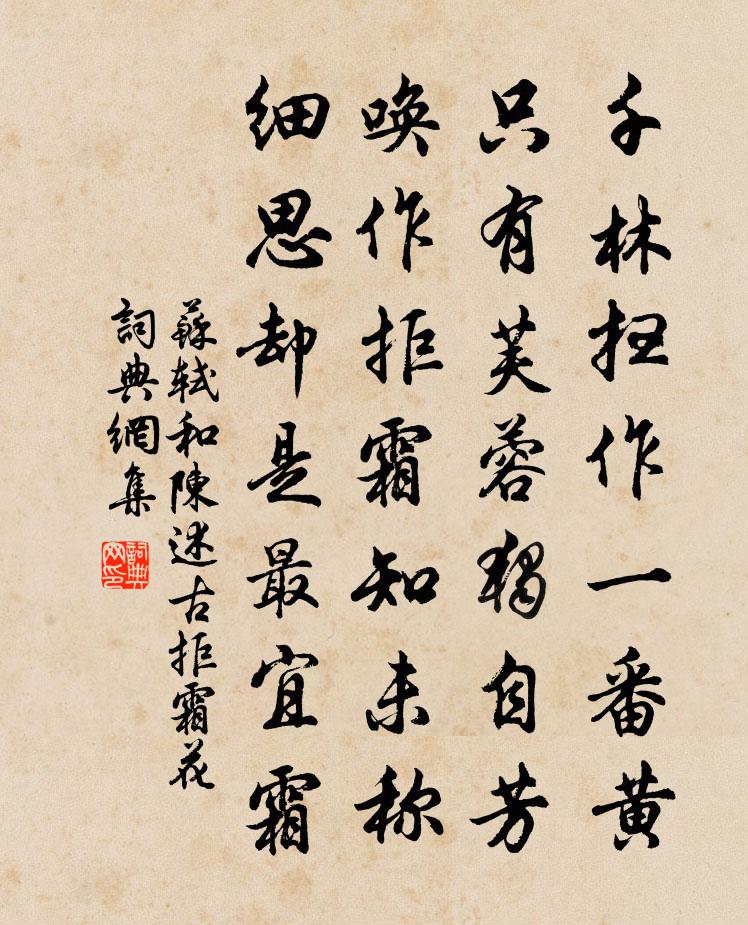 千林扫作一番黄
只有芙蓉獨自芳
唤作拒霜知未称
细思却是最宜霜
蘇軾和陳述古拒霜花
詞典網集
詞典
网印